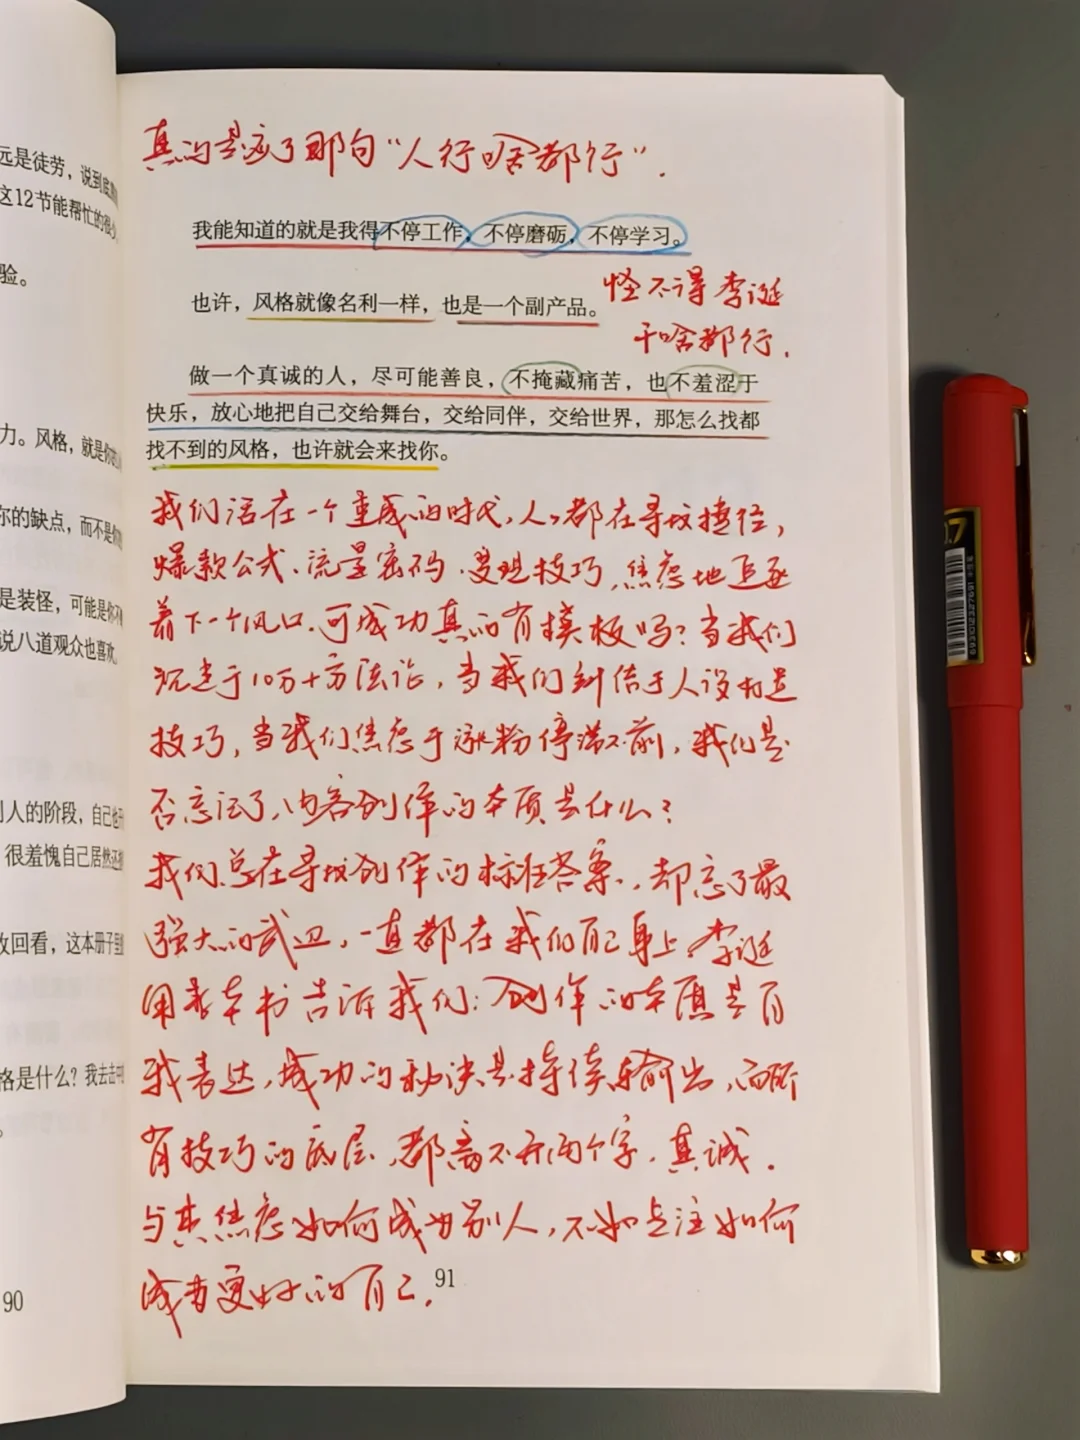 远是徒劳，说到底
这12节能帮忙的很少
验。
力。风格，就是你的
你的缺点，而不是你
是装怪，可能是你不
说八道观众也喜欢。
别人的阶段，自己也
很羞愧自己居然还
放回看，这本册子里
格是什么？我去击中
。
90
真的是应了那句“人行啥都行”．
我能知道的就是我得不停工作，不停磨砺，不停学习。
怪不得李诞
干啥都行．
也许，风格就像名利一样，也是一个副产品。
做一个真诚的人，尽可能善良，不掩藏痛苦，也不羞涩于
快乐，放心地把自己交给舞台，交给同伴，交给世界，那怎么找都
找不到的风格，也许就会来找你。
我们活在一个速成的时代，人人都在寻找捷径，
爆款公式、流量密码、变现技巧，焦虑地追逐
着下一个风口、可成功真的有模板吗？当我们
沉迷于10万+方法论，当我们纠结于人设打造
技巧，当我们焦虑于涨粉停滞不前，我们是
否忘记了，内容创作的本质是什么？
我们总在寻找创作的标准答案，却忘了最
强大的武器，一直都在我们自己身上，李诞
用整本书告诉我们：创作的本质是自
我表达，成功的秘诀是持续输出，而所
有技巧的底层，都离不开两个字，真诚．
与其焦虑如何成为别人，不如专注如何
成为更好的自己．
91
0.7